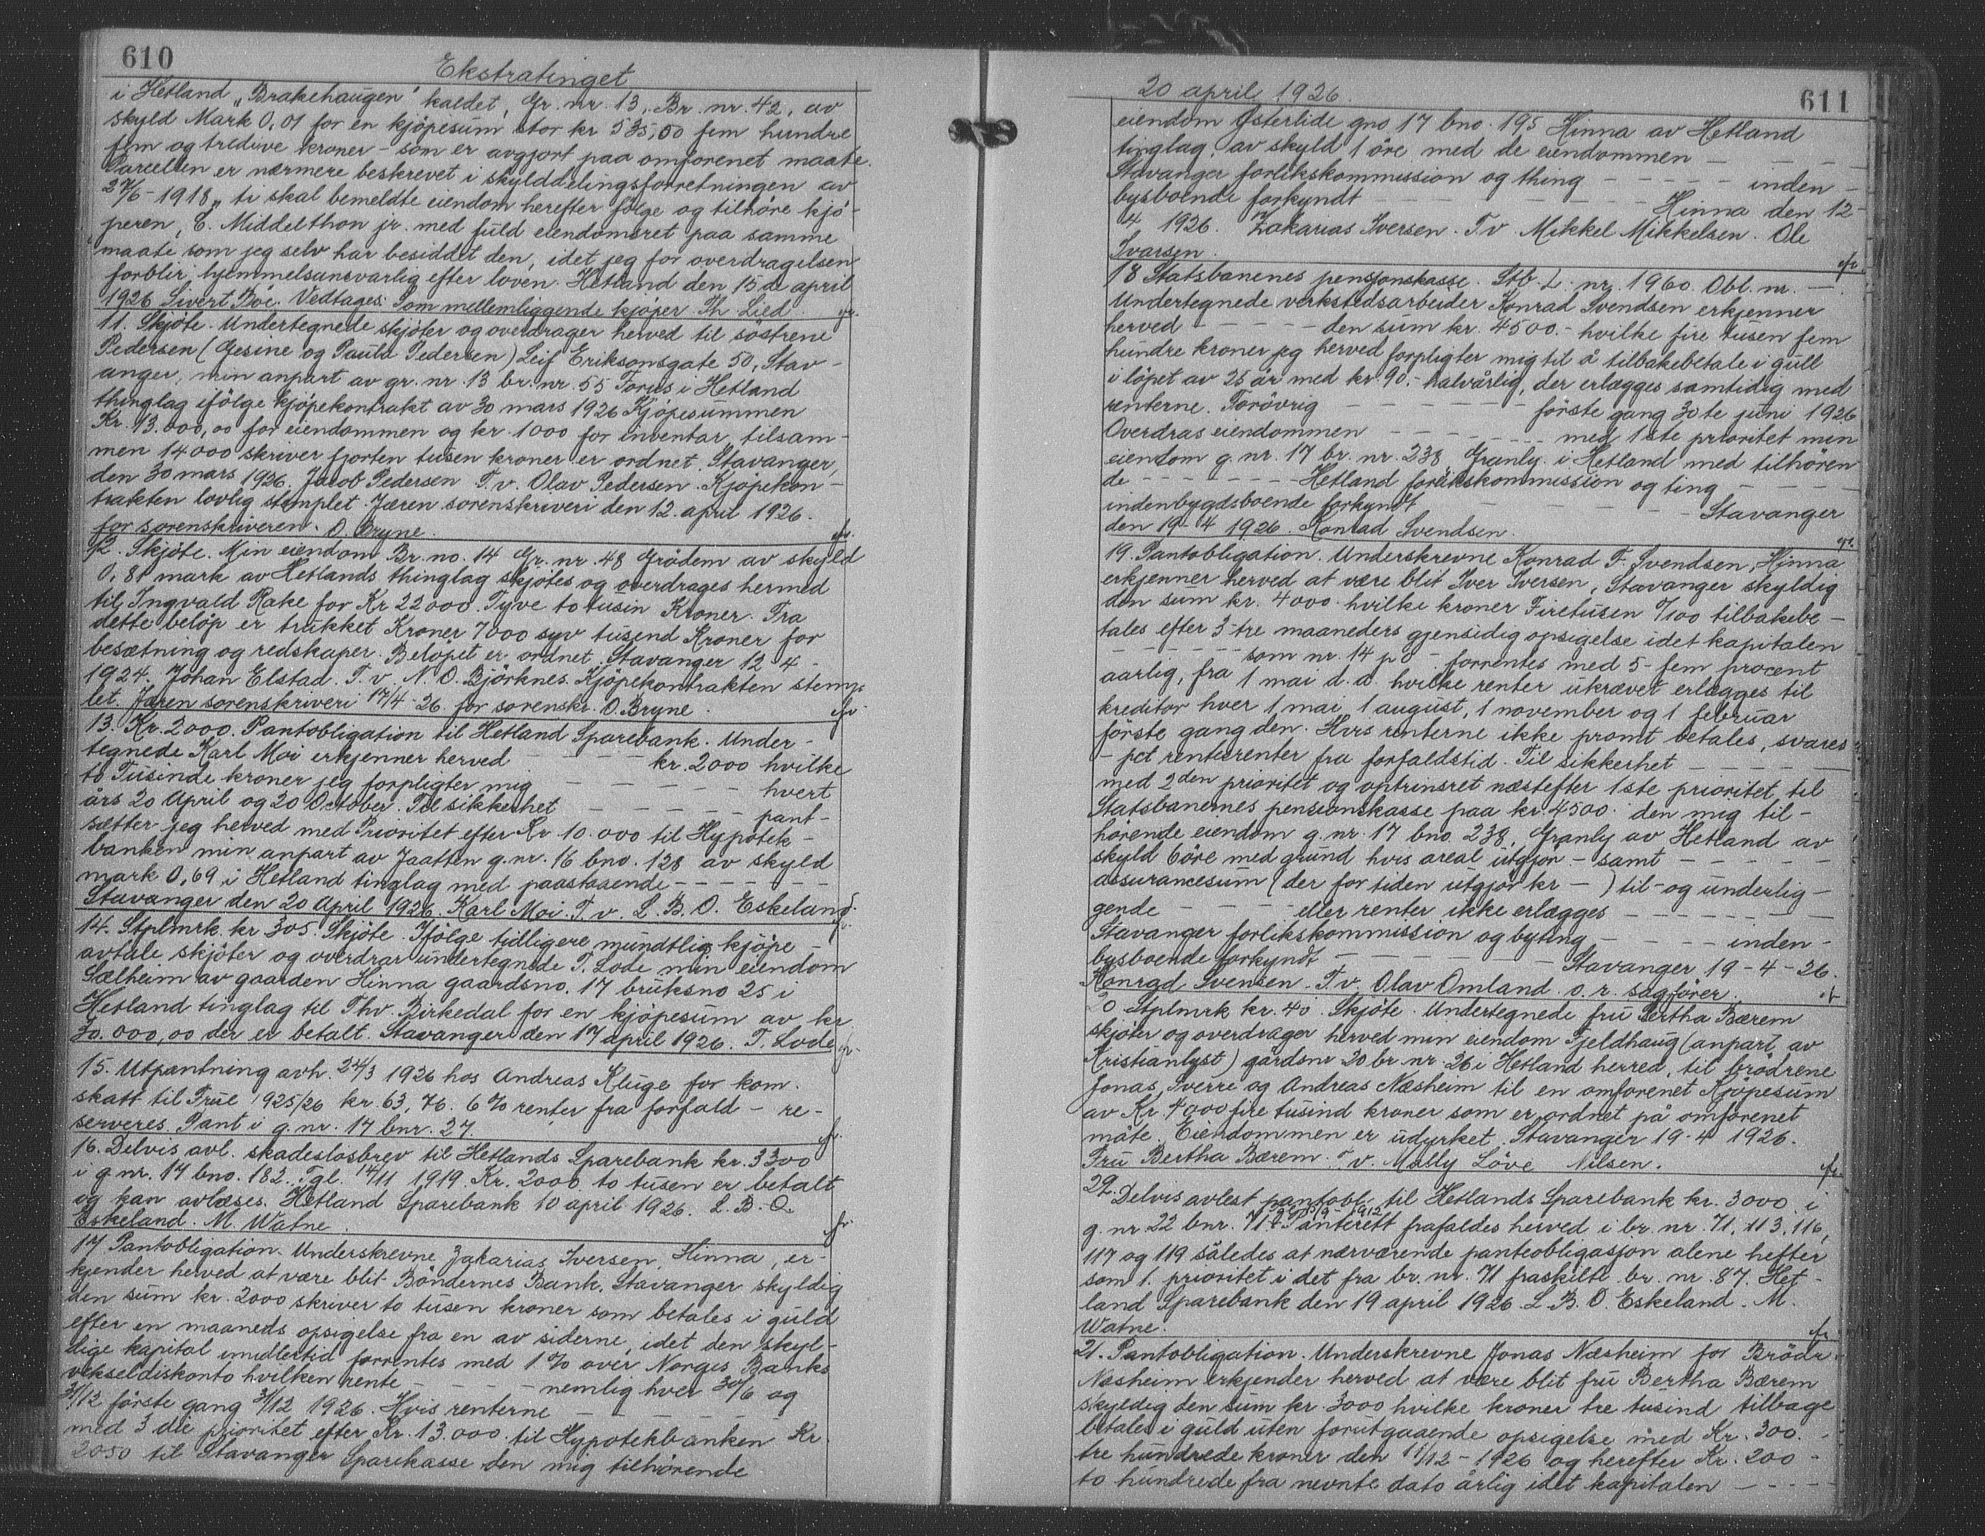 610
Ekstratinget
i Hetland „Brakehaugen" kaldet, Gr. nr. 13, Br. nr. 42, av
skyld Mark 0,01 for en kjøpesum stor kr 535,00 fem hundre
fem og tredive kroner – som er avgjort paa omforenet maate.
Parcellen er nærmere beskrevet i skylddelingsforretningen av
27/6 – 1918, ti skal bemeldte eiendom herefter følge og tilhøre kjø-
peren, C. Middelthon jr. med fuld eiendomsret paa samme
maate som jeg selv har besiddet den, idet jeg for overdragelsen
forblir hjemmelsansvarlig efter loven. Hetland den 15de april
1926 Sivert Bøe. Vedtages: Som mellemliggende kjøper Th Lied.
11. Skjøte. Undertegnede skjøter og overdrager herved til søstrene
Pedersen (Gesine og Paula Pedersen) Leif Eriksonsgate 50, Stav-
anger, min anpart av gr. nr 13 br. nr. 55 Torjes i Hetland
thinglag ifølge kjøpekontrakt av 30 mars 1926 Kjøpesummen
Kr. 13.000,00 for eiendommen og kr. 1000 for inventar, tilsam-
men 14000 skriver fjorten tusen kroner er ordnet. Stavanger,
den 30 mars 1926. Jacob Pedersen T. v. Olav Pedersen. Kjøpekon-
trakten lovlig stemplet. Jæren sorenskriveri den 12. april 1926.
for sorenskriveren. O. Bryne.
12. Skjøte. Min eiendom Br. no. 14 Gr. nr. 48 Grødem av skyld
0,81 mark av Hetlands thinglag skjøtes og overdrages hermed
til Ingvald Rake for Kr 22000. Tyve to tusin Kroner. Fra
dette beløp er trukket Kroner 7000 syv tusend Kroner for
besætning og redskaper. Beløpet er ordnet. Stavanger 12 4 –
1924. Johan Elstad. T. v. N. O. Björknes. Kjöpekontrakten stemp-
let. Jæren sorenskriveri 17/4–26. for sorenskr. O. Bryne.
13. Kr. 2000. Pantobligation til Hetland Sparebank. Under-
tegnede Karl Moi erkjenner herved – – – kr. 2000 hvilke
to Tusinde kroner jeg forpligter mig – – – – – hvert
års 20 April og 20 October. Til sikkerhet – – – – – pant-
sætter jeg herved med Prioritet efter Kr 10.000 til Hypotek-
banken min anpart av Jaatten g. nr. 16 bno. 128 av skyld
mark 0,69 i Hetland tinglag med paastaaende – – – – – –
Stavanger den 20 April 1926. Karl Moi. T. v. L. B. O. Eskeland.
14. Stplmrk. kr 305. Skjøte. Ifølge tidligere mundtlig kjøpe-
avtale skjøter og overdrar undertegnede T. Lode min eiendom
Sælheim av gaarden Hinna gaardsno. 17 bruksno 25 i
Hetland tinglag til Thv. Birkedal for en kjøpesum av kr
30.000,00 der er betalt. Stavanger den 17 april 1926. T. Lode
15. Utpantning avh. 24/3 1926 hos Andreas Kluge for kom.
skatt til True 1925/26 kr. 63,76. 6% renter fra forfald – re-
serveres. Pant i g. nr. 17 bnr. 27.
16. Delvis avl. skadesløsbrev til Hetlands Sparebank kr. 3300
i g. nr. 17 bno. 182. Tgl. 14/11 1919. Kr. 2000 to tusen er betalt
og kan avlæses. Hetland Sparebank 10 april 1926. L. B. O.
Eskeland. M. Watne.
17 Pantobligation. Underskrevne, Zakarias Iversen, Hinna, er-
kjender herved at være blit Böndernes Bank, Stavanger skyldig
den sum kr. 2000 skriver to tusen kroner som betales i guld
efter en maaneds opsigelse fra en av siderne, idet den skyl-
dige kapital imidlertid forrentes med 1% over Norges Banks
vekseldiskonto hvilken rente – – – – nemlig hver 30/6 og
31/12 første gang 31/12 1926. Hvis renterne – – – – – –
med 3 die prioritet efter Kr. 13.000. til Hypotekbanken Kr.
2050 til Stavanger Sparekasse den mig tilhørende
20 april 1926.
611
eiendom Østerlide gno 17 bno. 195 Hinna av Hetland
tinglag, av skyld 1 öre med de eiendommen – – – –
Stavanger forlikskommission og thing – – – – – inden-
bysboende forkyndt – – – – – – – Hinna den 12-
4 1926. Zakarias Iversen. T v Mikkel Mikkelsen. Ole
Ivarsen.
18 Statsbanenes pensjonskasse. Stb L: nr. 1960. Obl. nr. –
Undertegnede verkstedsarbeider Konrad Svendsen erkjenner
herved – – – – – den sum kr. 4500.– hvilke fire tusen fem
hundre kroner jeg herved forpligter mig til å tilbakebetale i gull
i löpet av 25 år med kr. 90.– halvårlig, der erlægges samtidig med
renterne. Forøvrig – – – – – – første gang 30te juni 1926
Overdras eiendommen – – – – – – – med 1ste prioritet min
eiendom g. nr. 17 br. nr. 238 Granly i Hetland med tilhören
de – – – – – – – Hetland forlikskommission og ting – – – – –
indenbygdsboende forkyndt – – – – – – – – Stavanger
den 19–4 1926. Konrad Svendsen.
19. Pantobligation. Underskrevne Konrad F. Svendsen, Hinna
erkjenner herved at være blit Iver Iversen, Stavanger skyldig
den sum kr. 4000. hvilke kroner Firetusen 0/100 tilbakebe-
tales efter 3-tre maaneders gjensidig opsigelse idet kapitalen
– – – – – som nr. 14 på – forrentes med 5-fem procent
aarlig, fra 1 mai d. å. hvilke renter ukrævet erlægges til
kreditor hver 1 mai, 1 august, 1 november og 1 februar
første gang den. Hvis renterne ikke promt betales, svares
– pct renterenter fra forfaldstid. Til sikkerhet – – – – –
med 2den prioritet og optrinsret næstefter 1ste prioritet til
Statsbanernes pensionskasse paa kr. 4500. den mig til-
hørende eiendom g. nr. 17 bno. 238, Granly av Hetland av
skyld 6 öre med grund hvis areal utgjör – samt – – – – –
assurancesum (der for tiden utgjør kr –) til- og underlig-
gende – – – – eller renter ikke erlægges – – – – – –
Stavanger forlikskommission og byting – – – – inden-
bysboende forkyndt – – – – – – – Stavanger 19–4–26.
Konrad Svensen. T. v. Olav Omland. o. r. sagfører.
20 Stplmrk kr. 40. Skjøte. Undertegnede fru Bertha Bærem
skjøter og overdrager herved min eiendom Fjeldhaug (anpart av
Kristianlyst) gårdsnr 20 br. nr. 26 i Hetland herred, til brødrene
Jonas, Sverre og Andreas Næsheim til en omforenet Kjøpesum
av Kr. 4000 fire tusind kroner som er ordnet på omforenet
måte. Eiendommen er udyrket. Stavanger 19-4 1926.
Fru Bertha Bærem. T v. Mally Löve Nilsen.
Delvis avlest pantobl. til Hetlands Sparebank kr. 3000. i
g. nr. 22 bnr. 71. Panterett frafaldes herved i br. nr. 71, 113, 116,
117 og 119 således at nærværende panteobligasjon alene hefter
som 1. prioritet i det fra br. nr. 71 fraskilte br. nr. 87. Het-
land Sparebank den 19 april 1926. L. B. O. Eskeland. M.
Watne.
21. Pantobligation. Underskrevne Jonas Næsheim for Brödr
Næsheim erkjender herved at være blit fru Bertha Bærem
skyldig den sum kr. 3000 hvilke kroner tre tusind tilbage
betales i guld uten forutgaaende opsigelse med Kr. 300.–
tre hundrede kroner den 11/12–1926 og herefter Kr. 200–
to hundrede fra nevnte dato årlig idet kapitalen – – – –